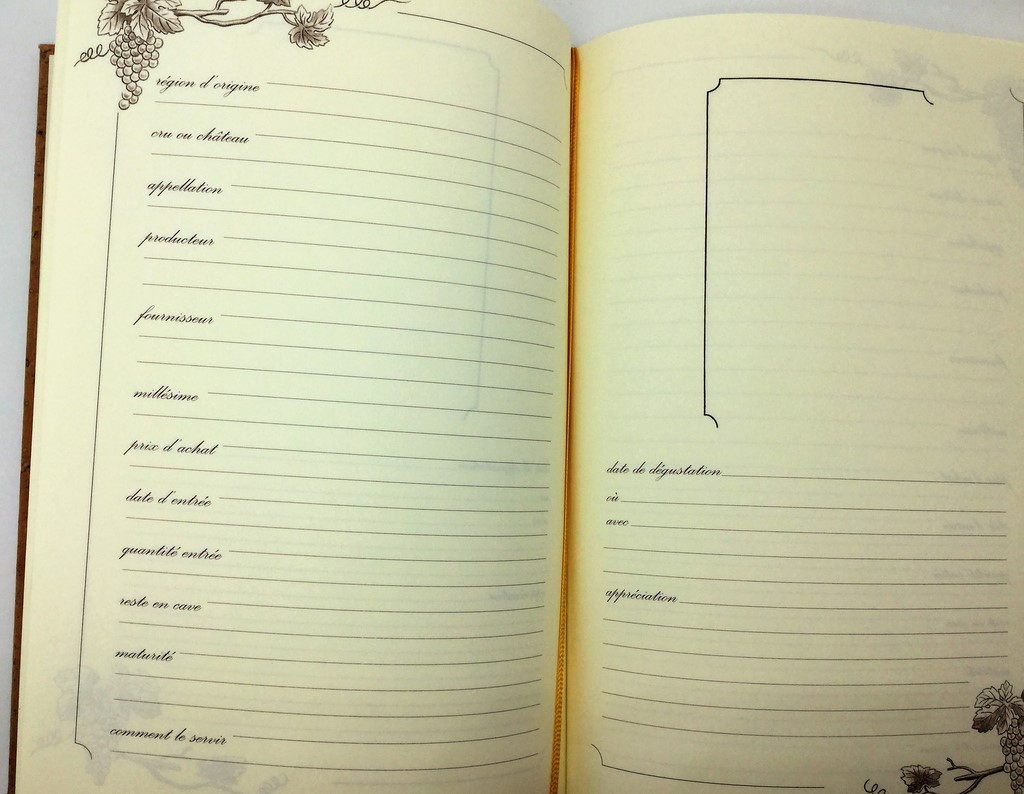 région d'origine
cru ou château
appellation
producteur
fournisseur
millésime
prix d'achat
date d'entrée
quantité entrée
reste en cave
maturité
comment le servir
date de dégustation
où
avec
appréciation